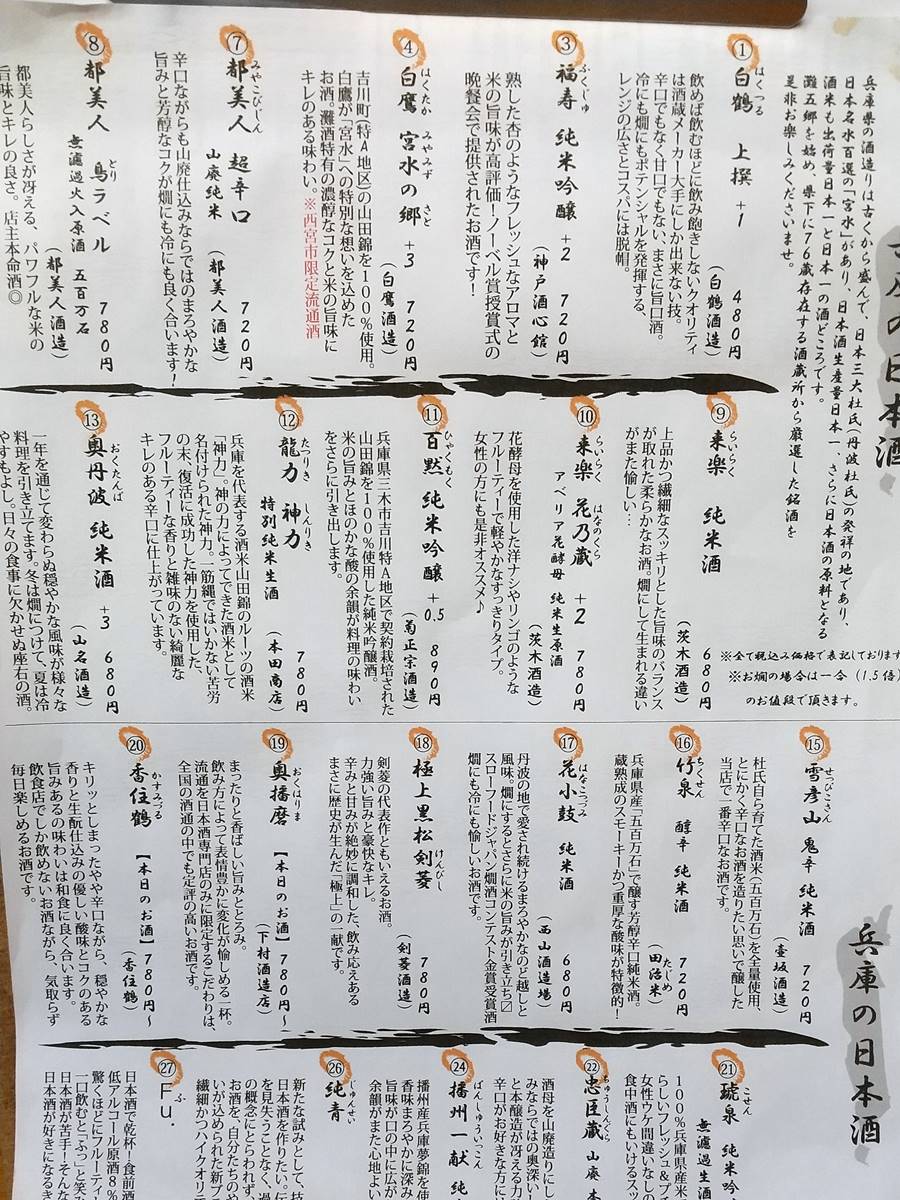 兵庫の日本酒
兵庫県の酒造りは古くから盛んで、日本三大杜氏(丹波杜氏)の発祥の地であり、
日本名水百選の「宮水」があり、日本酒生産量日本一、さらに日本酒の原料となる
酒米も出荷量日本一と日本一の酒どころです。
灘五郷を始め、県下に76蔵存在する酒蔵所から厳選した銘酒を
是非お楽しみくださいませ。
① 白鶴 上撰 +1 480円
はくつる
(白鶴酒造)
飲めば飲むほどに飲み飽きしないクオリティ
は酒蔵メーカー大手にしか出来ない技。
辛口でもなく甘口でもない、まさに旨口酒。
冷にも燗にもポテンシャルを発揮する、
レンジの広さとコスパには脱帽。
③ 福寿 純米吟醸 +2 720円
ふくじゅ
(神戸酒心館)
熟した杏のようなフレッシュなアロマと
米の旨味が高評価!ノーベル賞授賞式の
晩餐会で提供されたお酒です!
④ 白鷹 宮水の郷 +3 720円
はくたか みやみず さと
(白鷹酒造)
吉川町(特A地区)の山田錦を100%使用。
白鷹が「宮水」への特別な想いを込めた
お酒。灘酒特有の濃醇なコクと米の旨味に
キレのある味わい。※西宮市限定流通酒
⑦ 都美人 超辛口 720円
みやこびじん
山廃純米 (都美人酒造)
辛口ながらも山廃仕込みならではのまろやかな
旨みと芳醇なコクが燗にも冷にも良く合います!
⑧ 都美人 鳥ラベル 780円
とり
無濾過火入原酒 五百万石
(都美人酒造)
都美人らしさが冴える、パワフルな米の
旨味とキレの良さ。店主本命酒◎
※全て税込み価格で表記しております
※お燗の場合は一合(1.5倍)
のお値段で頂きます。
⑨ 来楽 純米酒 680円
らいらく
(茨木酒造)
上品かつ繊細なスッキリとした旨味のバランス
が取れた柔らかなお酒。燗にして生まれる違い
がまた愉しい…
⑩ 来楽 花乃蔵 +2 780円
らいらく はなのくら
アベリア花酵母 純米生原酒
(茨木酒造)
花酵母を使用した洋ナシやリンゴのような
フルーティーで軽やかなすっきりタイプ。
女性の方にも是非オススメ♪
⑪ 百黙 純米吟醸 +0.5 890円
ひゃくもく
(菊正宗酒造)
兵庫県三木市吉川特A地区で契約栽培された
山田錦を100%使用した純米吟醸酒。
米の旨みとほのかな酸の余韻が料理の味わい
をさらに引き出します。
⑫ 龍力 神力 780円
たつりき しんりき
特別純米生酒 (本田商店)
兵庫を代表する酒米山田錦のルーツの酒米
「神力」。神の力によってできた酒米として
名付けられた神力。一筋縄ではいかない苦労
の末、復活に成功した神力を使用した、
フルーティーな香りと雑味のない綺麗な
キレのある辛口に仕上がっています。
⑬ 奥丹波 純米酒 +3 680円
おくたんば
(山名酒造)
一年を通じて変わらぬ穏やかな風味が様々な
料理を引き立てます。冬は燗につけて、夏は冷
やすもよし。日々の食事に欠かせぬ座右の酒。
兵庫の日本酒
⑮ 雪彦山 鬼辛 純米酒 720円
せっぴこさん
(壺坂酒造)
杜氏自ら育てた酒米(五百万石)を全量使用、
とにかく辛口なお酒を造りたい思いで醸した
当店で一番辛口なお酒です。
⑯ 竹泉 醇辛 純米酒 720円
ちくせん
(田治米)
たじめ
兵庫県産「五百万石」で醸す芳醇辛口純米酒。
蔵熟成のスモーキーかつ重厚な酸味が特徴的!
⑰ 花小鼓 純米酒 680円
はなこつづみ
(西山酒造場)
丹波の地で愛され続けるまろやかなのど越しと
風味。燗にするとさらに米の旨みが引き立ち☑
スローフードジャパン燗酒コンテスト金賞受賞酒
燗にも冷にも愉しいお酒です。
⑱ 極上黒松剣菱 780円
けんびし
(剣菱酒造)
剣菱の代表作ともいえるお酒。
力強い旨みと豪快なキレ。
辛みと甘みが絶妙に調和した、飲み応えある
まさに歴史が生んだ「極上」の一献です。
⑲ 奥播磨 【本日のお酒】780円~
おくはりま
(下村酒造店)
まったりと香ばしい旨みととろみ。
飲み方によって表情豊かに変化が愉しめる一杯。
流通を日本酒専門店のみに限定するこだわりは、
全国の酒通の中でも定評の高いお酒です。
⑳ 香住鶴 【本日のお酒】780円~
かすみづる
(香住鶴)
キリッとしまったやや辛口ながら、穏やかな
香りと生酛仕込みの優しい酸味とコクのある
旨みあるの味わいは和食に良く合います。
飲食店でしか飲めないお酒ながら、気取らず
毎日楽しめるお酒です。
㉑ 琥泉 純米吟
こせん
無濾過生酒
100%兵庫県産米
らしいフレッシュ&フ
女性ウケ間違いなしの
食中酒にもいけるスッ
㉒ 忠臣蔵 山廃 本
ちゅうしんぐら
酒母を山廃造りにし
みならではの奥深い
と本醸造が冴える力
辛口がお好きな方に
㉔ 播州一献 純
ばんしゅういっこん
播州産兵庫夢錦を使
香味まろやかに深み
旨味が口の中に広が
余韻がまた心地よい
㉖ 純青
じゅんせい
新たな試みとして、技
日本酒を作りたい。伝
を見失うことなく、過
の概念にとらわれず、
お酒を、自分たちのや
いが込められた新ブラ
繊細かつハイクオリテ
㉗ Fu.
ふ
日本酒で乾杯!食前酒
低アルコール原酒8%
驚くほどにフルーティ
一口飲むと「ふっ」と笑み
日本酒が苦手!そんな
日本酒が好きになるき